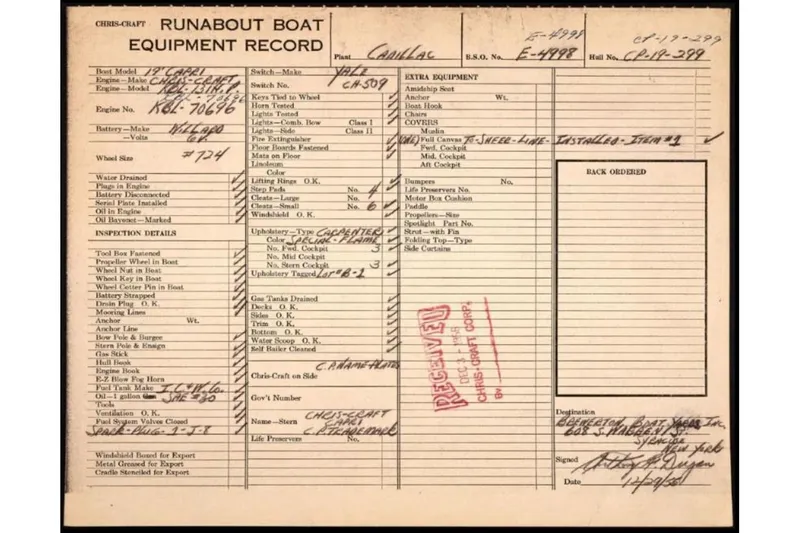 CHRIS-CRAFT RUNABOUT BOAT
EQUIPMENT RECORD
E-4998
CP-19-299
Plant CADILLAC
B.S.O. No. E-4998
Hull No. CP-19-299
Boat Model 19' CAPRI
Engine—Make CHRIS-CRAFT
Engine—Model KBL-131 H.P.
KBL-70696
Engine No. KBL-70696
Battery—Make WILLARD
—Volts 6V.
Wheel Size #724
Water Drained
Plugs in Engine
Battery Disconnected
Serial Plate Installed
Oil in Engine
Oil Bayonet—Marked
INSPECTION DETAILS
Tool Box Fastened
Propeller Wheel in Boat
Wheel Nut in Boat
Wheel Key in Boat
Wheel Cotter Pin in Boat
Battery Strapped
Drain Plug O. K.
Mooring Lines
Anchor Wt.
Anchor Line
Bow Pole & Burgee
Stern Pole & Ensign
Gas Stick
Hull Book
Engine Book
E-Z Blow Fog Horn
Fuel Tank Make I.C. & W. Co.
Oil—1 gallon SAE #30
Tools
Ventilation O. K.
Fuel System Valves Closed
SPARK-PLUG-1-J-8
Windshield Boxed for Export
Metal Greased for Export
Cradle Stenciled for Export
Switch—Make YALE
Switch No. CH-509
Keys Tied to Wheel
Horn Tested
Lights Tested
Lights—Comb. Bow Class I
Lights—Side Class II
Fire Extinguisher
Floor Boards Fastened
Mats on Floor
Linoleum
Color
Lifting Rings O.K.
Step Pads No. 4
Cleats—Large No.
Cleats—Small No. 6
Windshield O. K.
Upholstery—Type CARPENTER
Color SPECIAL-FLAME
No. Fwd. Cockpit 3
No. Mid Cockpit
No. Stern Cockpit 3
Upholstery Tagged LOT #B-1
Gas Tanks Drained
Decks O. K.
Sides O. K.
Trim O. K.
Bottom O. K.
Water Scoop O. K.
Self Bailer Cleared
C.P. NAME-PLATES
Chris-Craft on Side
Gov't Number
CHRIS-CRAFT
Name—Stern CAPRI
C.P. TRADEMARK
Life Preservers No.
EXTRA EQUIPMENT
Amidship Seat
Anchor Wt.
Boat Hook
Chairs
COVERS
Muslin
(ONE) Full Canvas TO-SHEER-LINE-INSTALLED-ITEM #1
Fwd. Cockpit
Mid. Cockpit
Aft Cockpit
Bumpers No.
Life Preservers No.
Motor Box Cushion
Paddle
Propellers—Size
Spotlight Part No.
Strut—with Fin
Folding Top—Type
Side Curtains
RECEIVED
DEC 31 1956
CHRIS-CRAFT CORP.
BY
BACK ORDERED
Destination
BREWERTON BOAT YARDS INC,
608 S. WARREN ST.
SYRACUSE
NEW YORK
Signed
Date 12/29/56